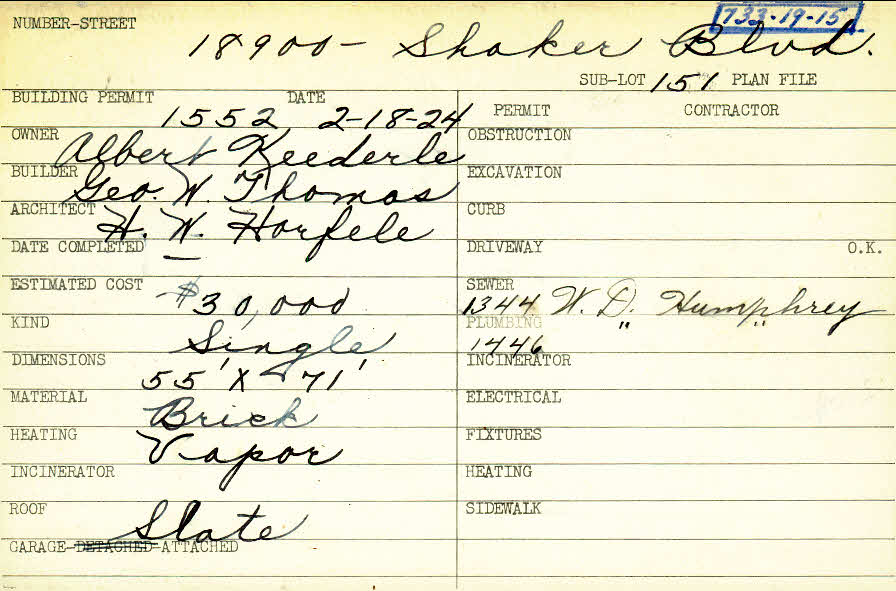 NUMBER-STREET
733-19-15
18900- Shaker Blvd.
SUB-LOT 151 PLAN FILE
BUILDING PERMIT DATE
1552 2-18-24
PERMIT CONTRACTOR
OWNER Albert Keederle
OBSTRUCTION
BUILDER Geo. W. Thomas
EXCAVATION
ARCHITECT H. W. Horfele
CURB
DATE COMPLETED —
DRIVEWAY O.K.
ESTIMATED COST $30,000
SEWER
1344 W. D. Humphrey
KIND Single
PLUMBING " "
1446
DIMENSIONS 55' X 71'
INCINERATOR
MATERIAL Brick
ELECTRICAL
HEATING Vapor
FIXTURES
INCINERATOR
HEATING
ROOF Slate
SIDEWALK
GARAGE-DETACHED-ATTACHED